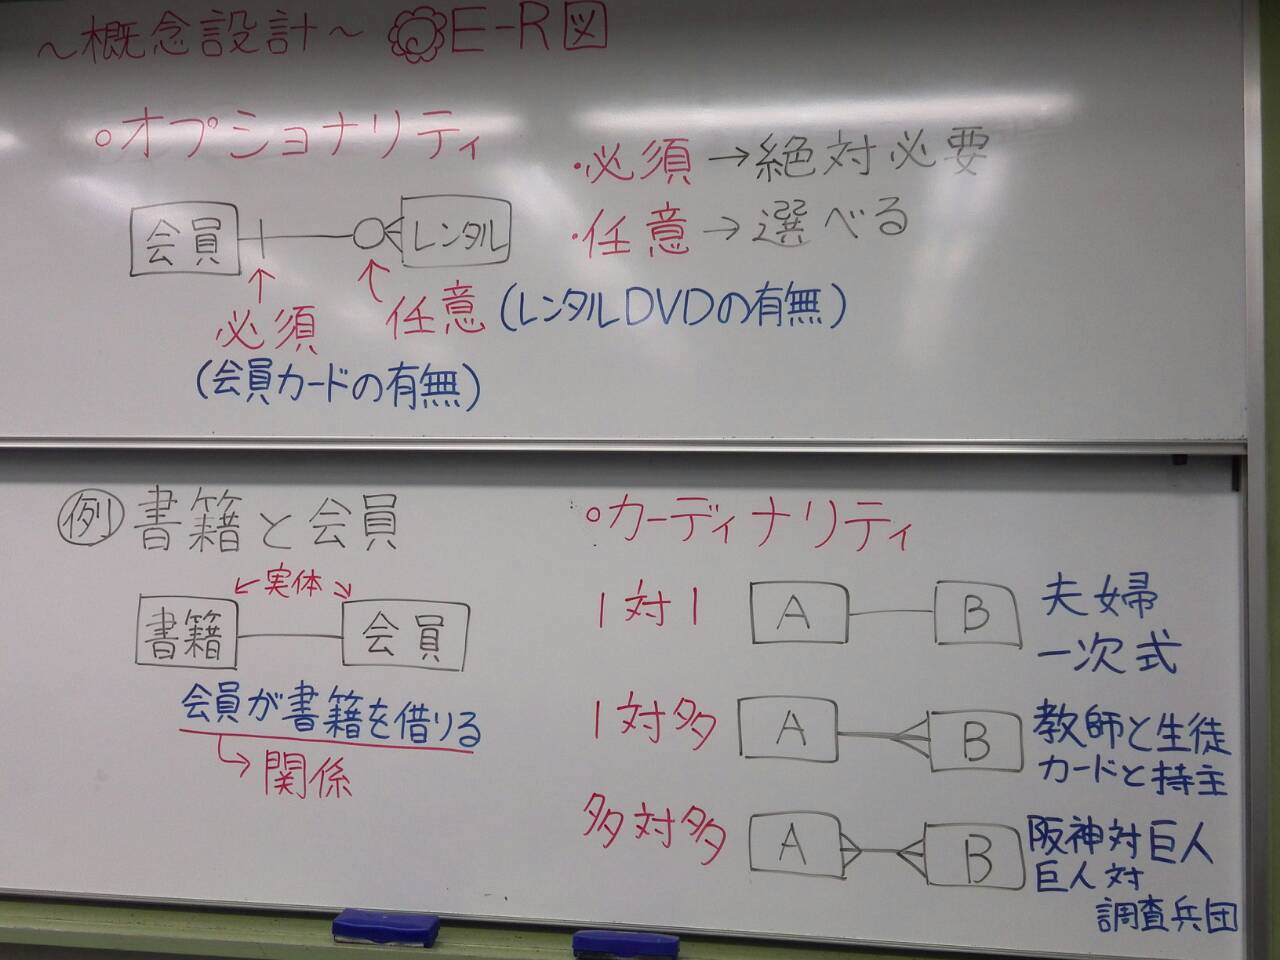 ～概念設計～ E-R図
○オプショナリティ
・必須→絶対必要
・任意→選べる
会員 レンタル
必須 任意 (レンタルDVDの有無)
(会員カードの有無)
例 書籍と会員
実体
書籍 会員
会員が書籍を借りる
関係
○カーディナリティ
1対1 A B 夫婦
一次式
1対多 A B 教師と生徒
カードと持主
多対多 A B 阪神対巨人
巨人対
調査兵団